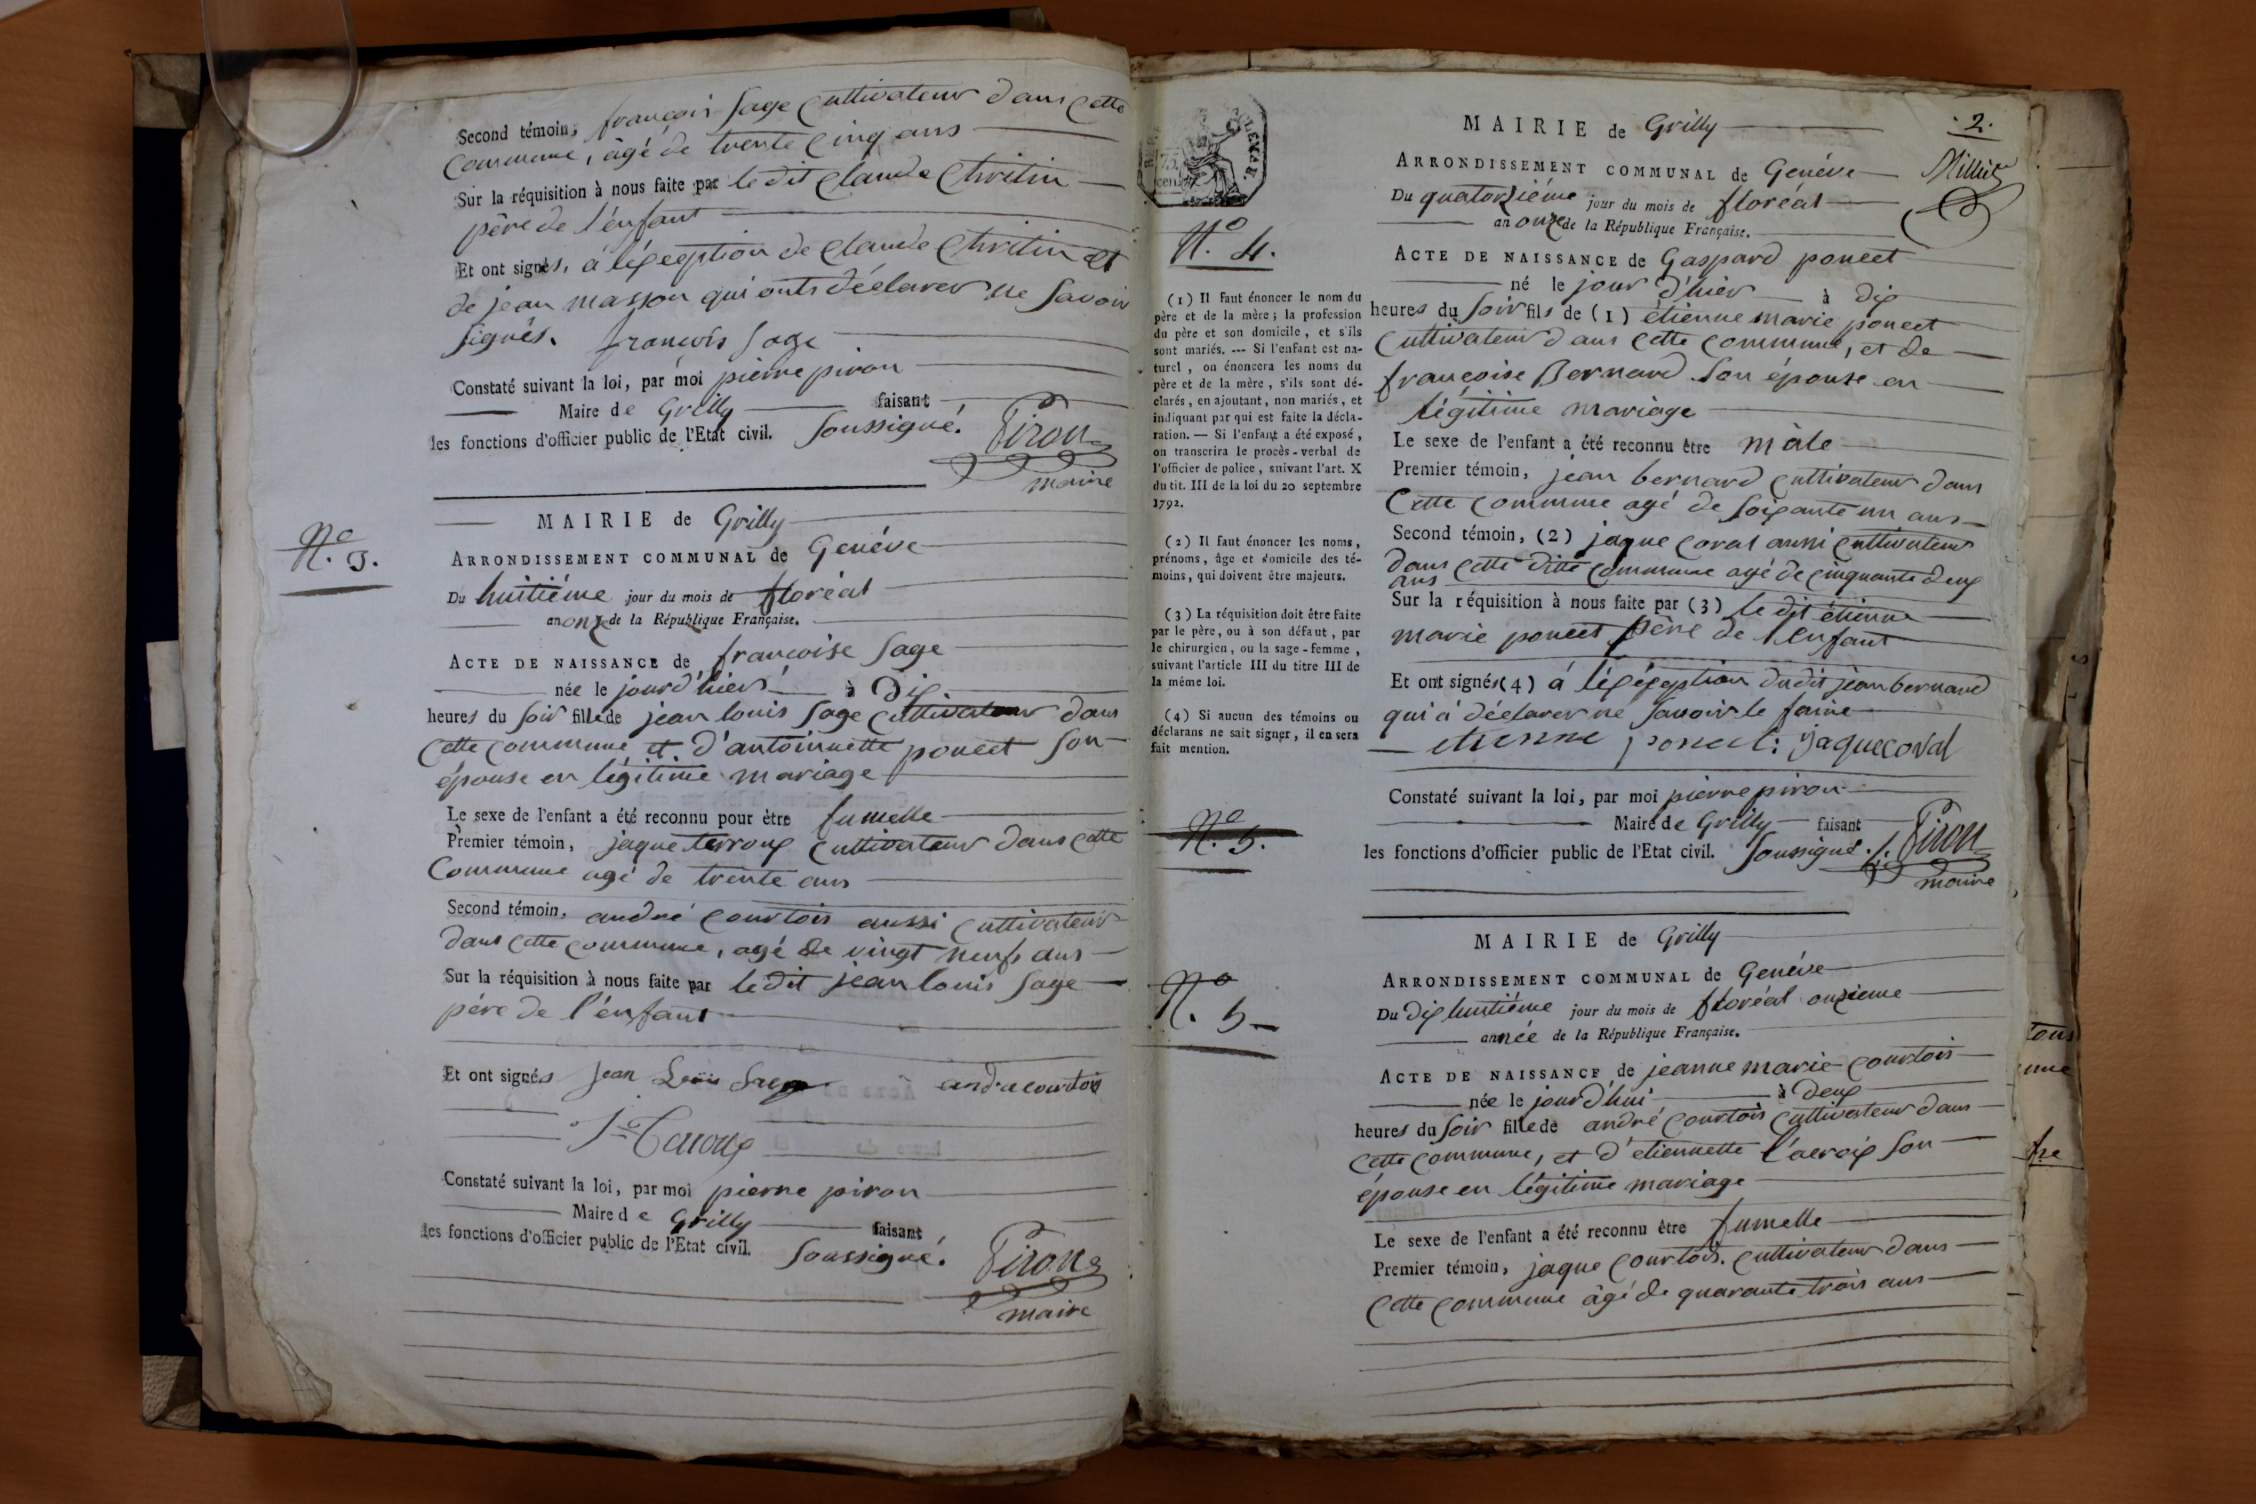 Second témoin, françois Sage Cultivateur dans Cette
Commune, âgé de trente Cinq ans
Sur la réquisition à nous faite par le dit Claude Chritin
père de l'énfant
Et ont signés, à léxception de Claude Chritin et
de jean masson qui onts déclarer ne Savoir
Signés. françois Sage
Constaté suivant la loi, par moi pierre piron
Maire de Grilly faisant
les fonctions d'officier public de l'Etat civil. Soussigné. Piron
maire
N.° 3.
MAIRIE de Grilly
ARRONDISSEMENT COMMUNAL de Genéve
Du huitiéme jour du mois de floréal
an onze de la République Française.
ACTE DE NAISSANCE de françoise Sage
née le jour d'hiers à Dix
heures du Soir fille de jean louis Sage Cultivateur dans
Cette Commune et d'antoinette poncet Son
épouse en légitime mariage
Le sexe de l'enfant a été reconnu pour être fumelle
Premier témoin, jaque terroux Cultivateur dans Cette
Commune agé de trente ans
Second témoin, andré Courtois aussi Cultivateur
dans Cette Commune, agé de vingt neufs ans
Sur la réquisition à nous faite par le dit jean louis Sage
pére de l'énfant
Et ont signés Jean Louis Sage andre courtois
J.° Terroux
Constaté suivant la loi, par moi pierre piron
Maire de Grilly faisant
les fonctions d'officier public de l'Etat civil. Soussigné. Piron
maire
.2.
MAIRIE de Grilly
ARRONDISSEMENT COMMUNAL de Genéve
Du quatorziéme jour du mois de floréal
an onze de la République Française.
N.° 4.
ACTE DE NAISSANCE de Gaspard poncet
né le jour d'hier à dix
heures du Soir fils de (1) étienne marie poncet
Cultivateur dans Cette Commune, et de
françoise Bernard Son épouse en
légitime mariage
Le sexe de l'enfant a été reconnu être mâle
Premier témoin, jean bernard Cultivateur dans
Cette Commune agé de Soixante un ans
Second témoin, (2) jaque Coral aussi Cultivateur
dans Cette ditte Commune agé de Cinquante deux
ans
Sur la réquisition à nous faite par (3) le dit étienne
marie poncet père de l'énfant
Et ont signés (4) á léxéxeption dudit jean bernard
qui á déclarer né Savoir le faire
etienne poncet: jaque coral
Constaté suivant la loi, par moi pierre piron
Maire de Grilly faisant
les fonctions d'officier public de l'Etat civil. Soussigné. Piron
maire
(1) Il faut énoncer le nom du
père et de la mère; la profession
du père et son domicile, et s'ils
sont mariés. --- Si l'enfant est na-
turel, on énoncera les noms du
père et de la mère, s'ils sont dé-
clarés, en ajoutant, non mariés, et
indiquant par qui est faite la décla-
ration. — Si l'enfant a été exposé,
on transcrira le procès-verbal de
l'officier de police, suivant l'art. X
du tit. III de la loi du 20 septembre
1792.
(2) Il faut énoncer les noms,
prénoms, âge et domicile des té-
moins, qui doivent être majeurs.
(3) La réquisition doit être faite
par le père, ou à son défaut, par
le chirurgien, ou la sage-femme,
suivant l'article III du titre III de
la même loi.
(4) Si aucun des témoins ou
déclarans ne sait signer, il en sera
fait mention.
N.° 5.
N.° 5
MAIRIE de Grilly
ARRONDISSEMENT COMMUNAL de Genéve
Du dix huitiéme jour du mois de floréal onzieme
année de la République Française.
ACTE DE NAISSANCE de jeanne marie Courtois
née le jour d'hui à deux
heures du Soir fille de andré Courtois Cultivateur dans
Cette Commune, et d'étiennette lácroix Son
épouse en légitime mariage
Le sexe de l'enfant a été reconnu être fumelle
Premier témoin, jaque Courtois. Cultivateur dans
Cette Commune âgé de quarante trois ans